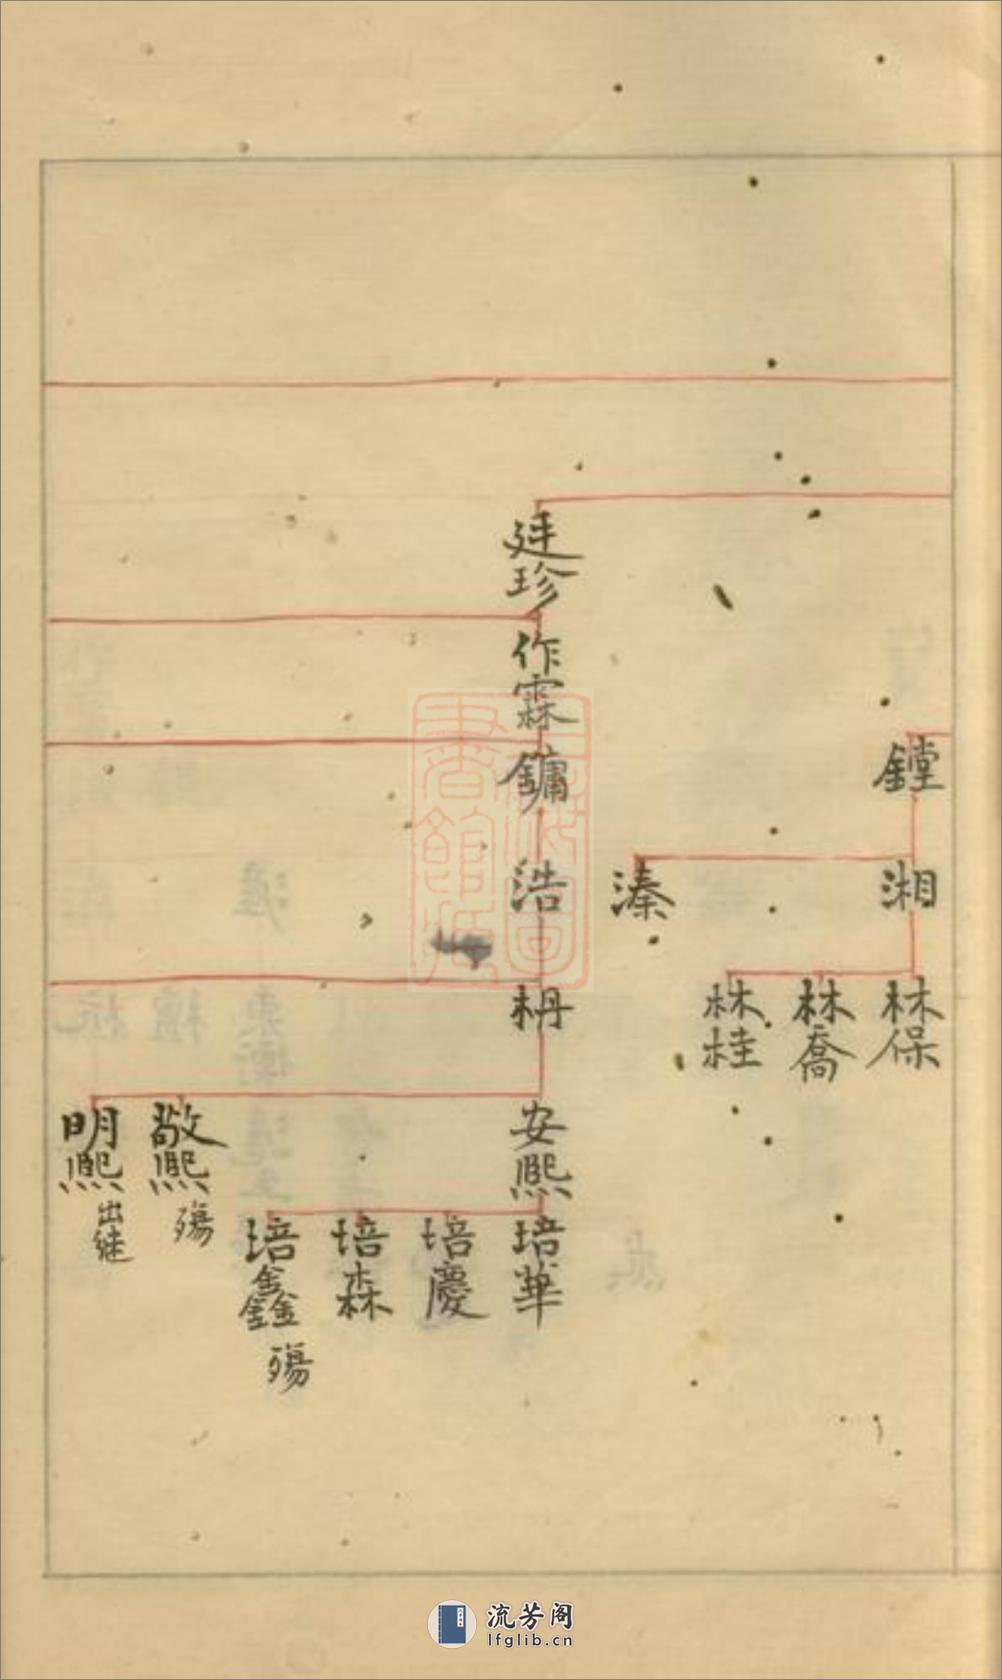 鏜
湘
溱
林保
林喬
林桂
廷珍
作霖
鏞
浩
枬
安熙
敬熙 殤
明熙 出继
培華
培慶
培森
培鑫 殤
流芳阁
lfglib.cn